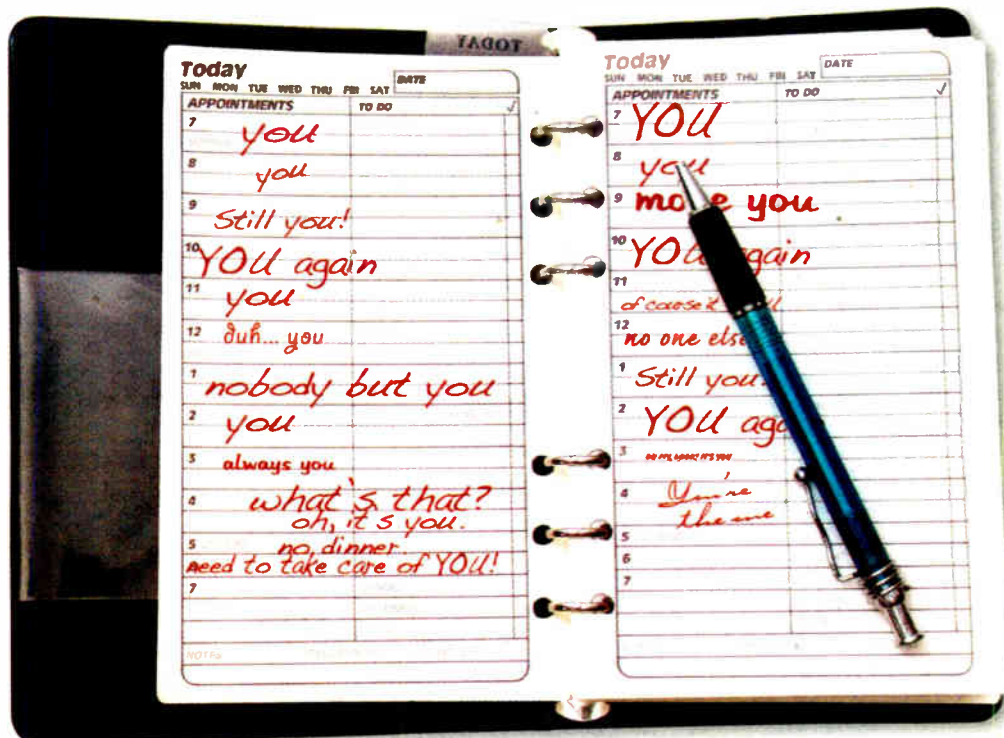 TODAY
Today
SUN MON TUE WED THU FRI SAT
DATE
APPOINTMENTS
TO DO
7
you
8
you
9
Still you!
10
YOU again
11
you
12
duh... you
1
nobody but you
2
you
3
always you
4
what's that?
oh, it's you.
5
no, dinner.
need to take care of YOU!
7
NOTES
Today
SUN MON TUE WED THU FRI SAT
DATE
APPOINTMENTS
TO DO
7
YOU
8
you
9
more you
10
YOU again
11
of course it
12
no one else
1
Still you!
2
YOU aga
3
OH MY, LOOK! IT'S YOU
4
You're
the one
5
6
7